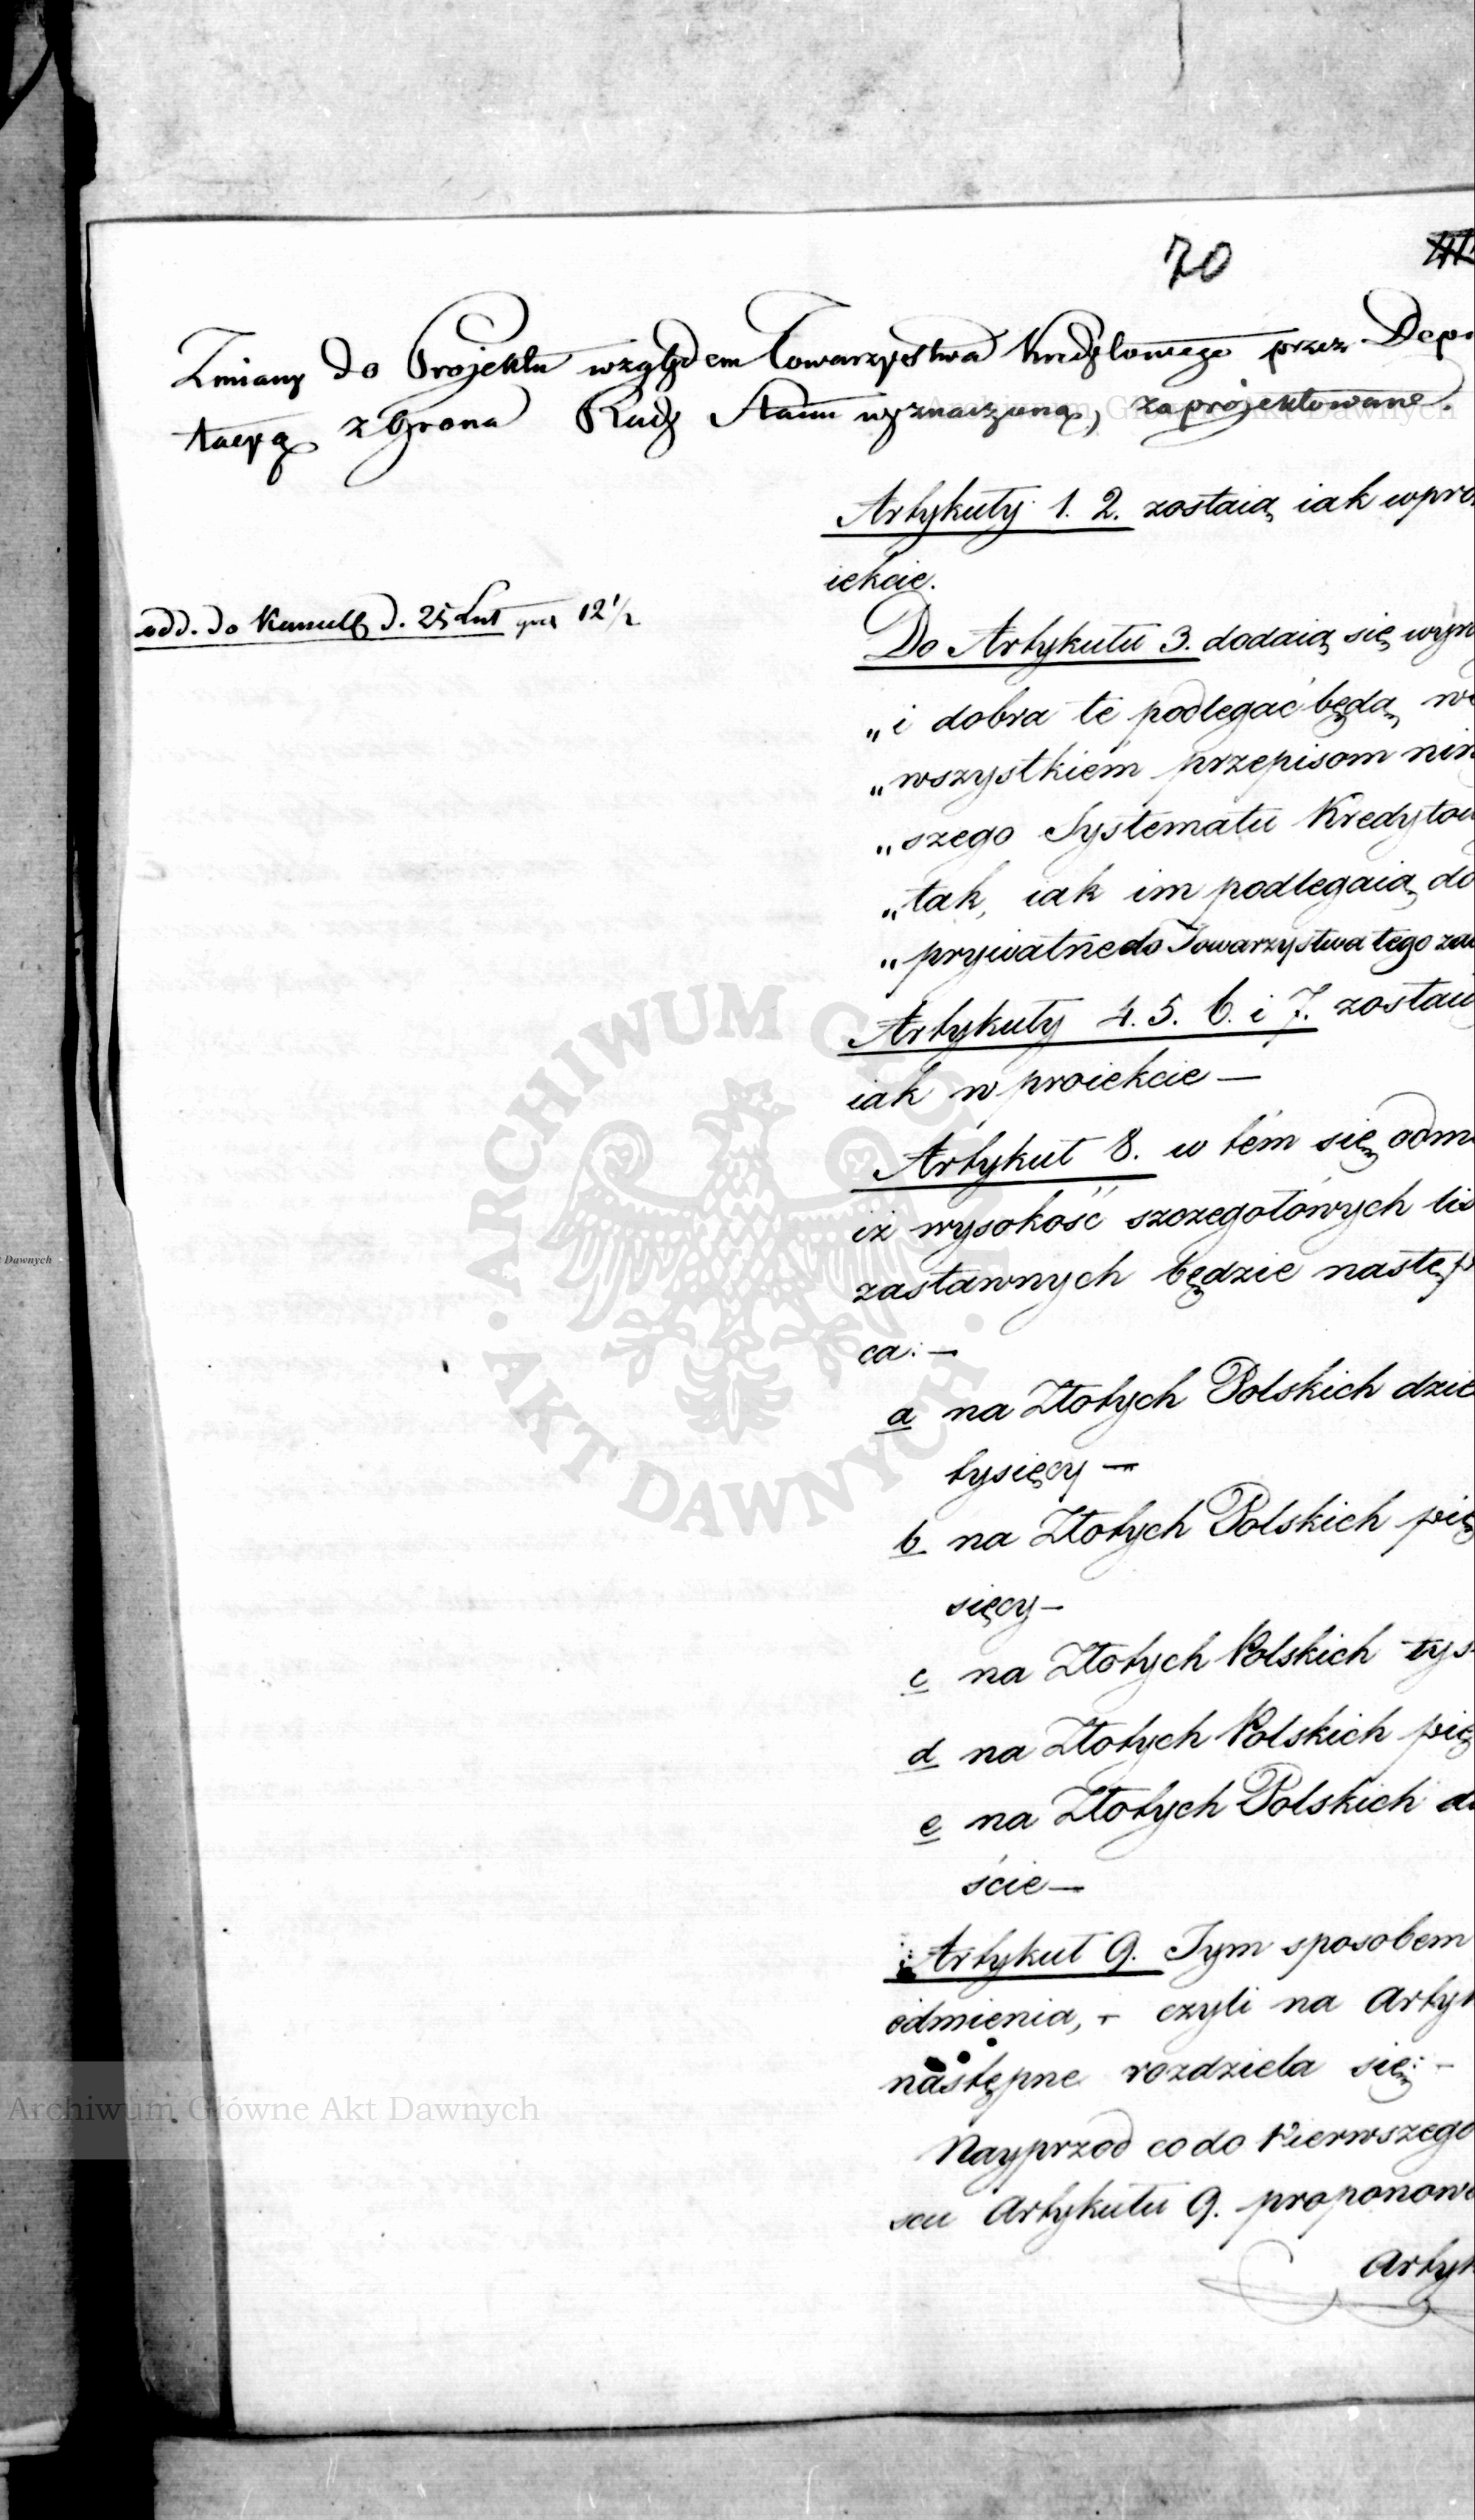 70
Zmiany do Projektu względem Towarzystwa Kredytowego przez Depu
tacyą z Grona Rady Stanu wyznaczoną, zaprojektowane.
Artykuły 1. 2. zostaią iak w pro
iekcie.
odd. do d. 25 Lut 12 1/2
Do Artykułu 3. dodaią się wyr
„i dobra te podlegać będą we
„wszystkiém przepisom nin
„szego Systematu Kredytow
„tak, iak im podlegaią do
„prywatne do Towarzystwa tego
Artykuły 4. 5. 6. i 7. zostaią
iak w proiekcie —
Artykuł 8. w tém się odmi
iż wysokość szczegołówych lis
zastawnych będzie następ
ca: —
a na Złotych Polskich dzie
tysięcy —
b na Złotych Polskich pię
sięcy —
c na Złotych Polskich tys
d na Złotych Polskich pię
e na Złotych Polskich d
ście —
Artykuł 9. Tym sposobem
odmienia, - czyli na Arty
następne rozdziela się: -
Nayprzod co do Pierwszego
scu Artykułu 9. proponow
Artyk
ARCHIWUM GŁÓWNE · AKT DAWNYCH ·
Archiwum Główne Akt Dawnych
Archiwum Główne Akt Dawnych
t Dawnych